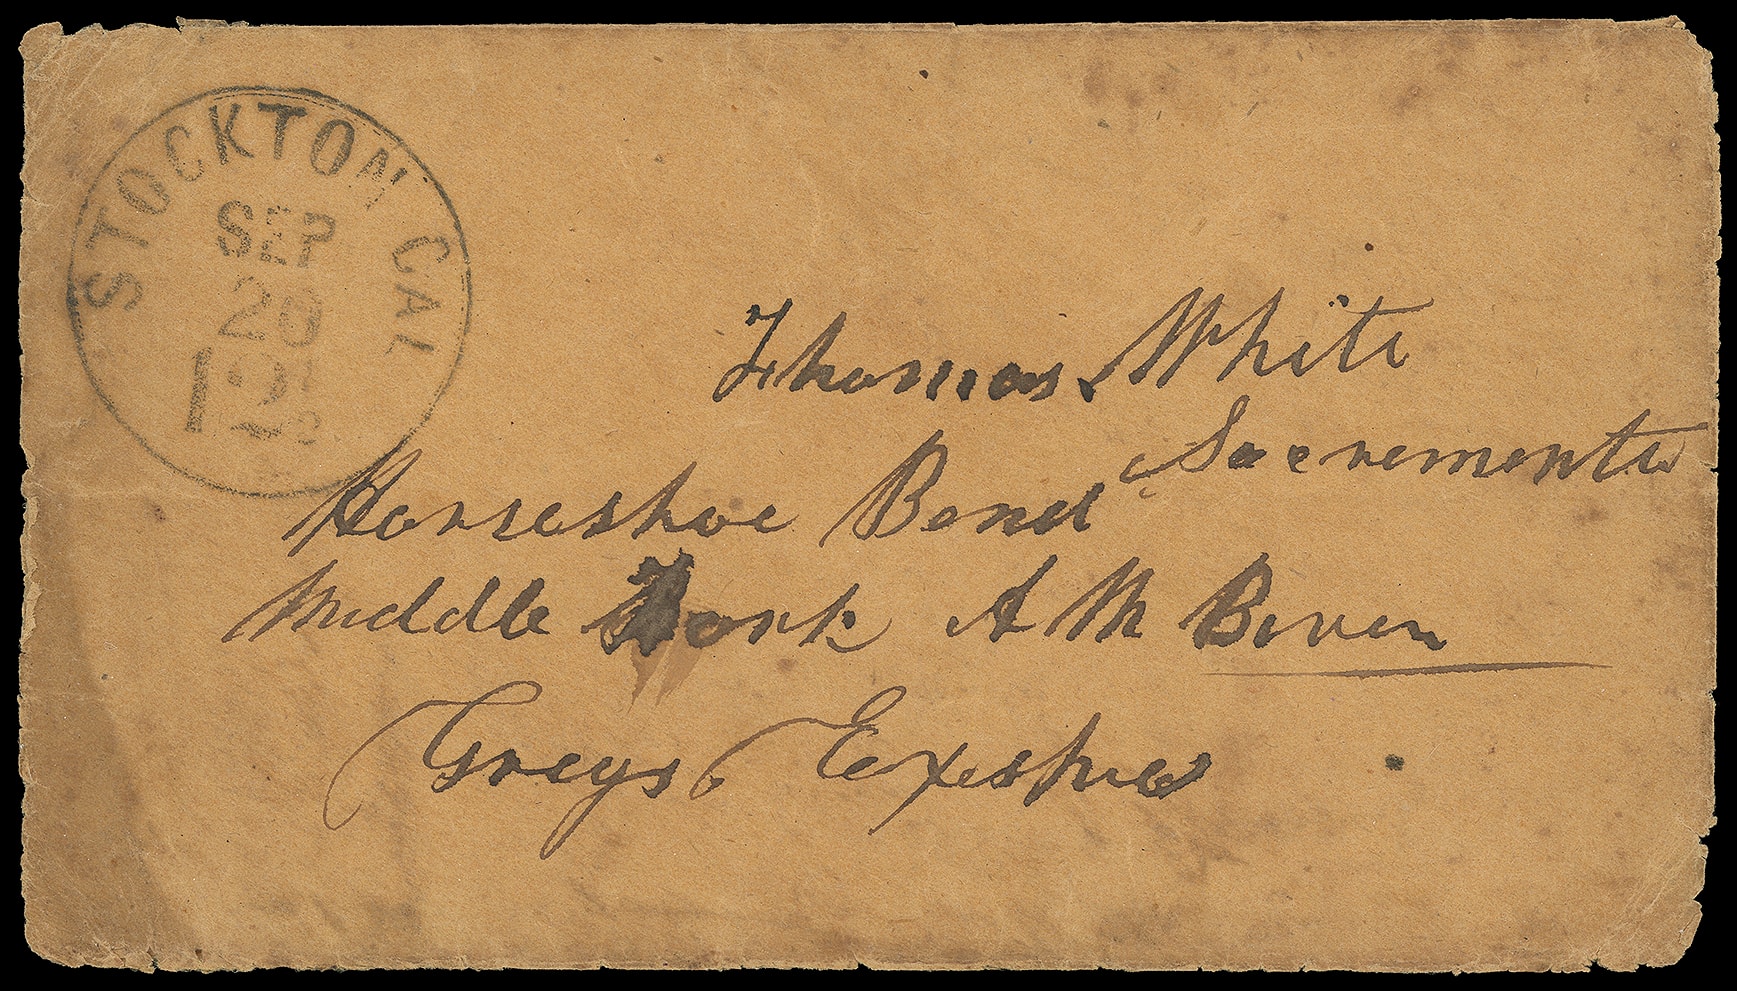 STOCKTON CAL
SEP
20
12½
Thomas White
Sacremento
Horseshoe Bend
Middle Fork A M River
Greys Express